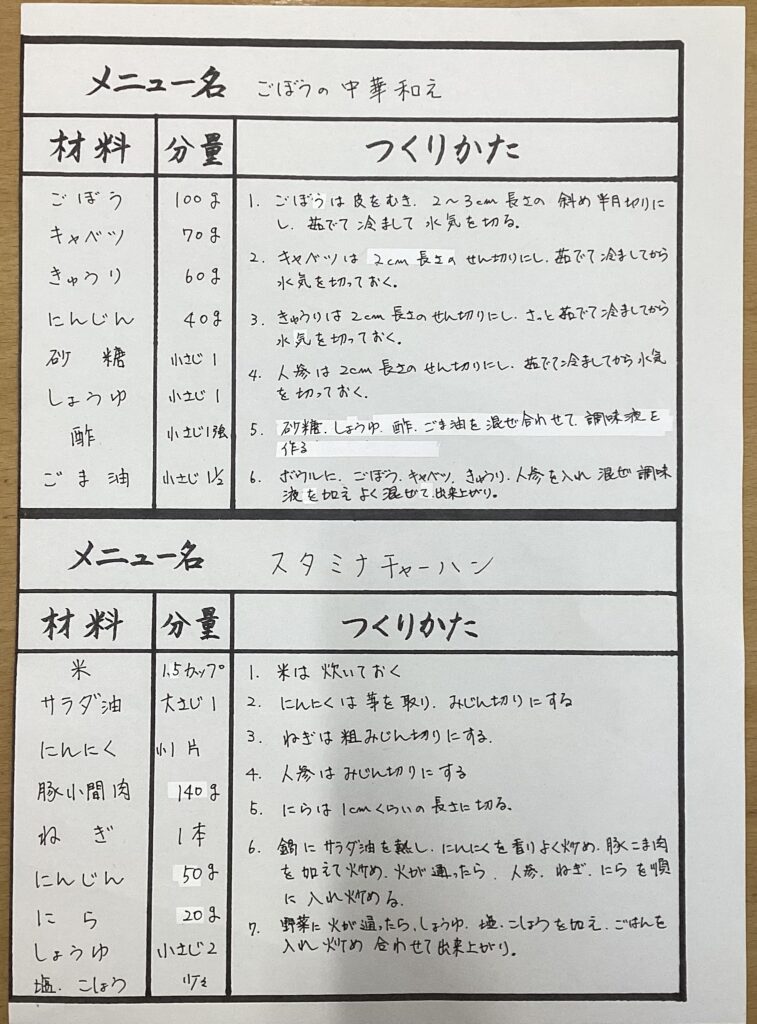 メニュー名 ごぼうの中華和え
材料 分量 つくりかた
ごぼう 100g
キャベツ 70g
きゅうり 60g
にんじん 40g
砂糖 小さじ1
しょうゆ 小さじ1
酢 小さじ1強
ごま油 小さじ1/2
1. ごぼうは皮をむき、2〜3cm長さの斜め半月切りに
し、茹でて冷まして水気を切る。
2. キャベツは2cm長さのせん切りにし、茹でて冷ましてから
水気を切っておく。
3. きゅうりは2cm長さのせん切りにし、さっと茹でて冷ましてから
水気を切っておく。
4. 人参は2cm長さのせん切りにし、茹でて冷ましてから水気
を切っておく。
5. 砂糖、しょうゆ、酢、ごま油を混ぜ合わせて、調味液を
作る
6. ボウルに、ごぼう、キャベツ、きゅうり、人参を入れ混ぜ調味
液を加えよく混ぜて出来上がり。
メニュー名 スタミナチャーハン
材料 分量 つくりかた
米 1.5カップ
サラダ油 大さじ1
にんにく 小1片
豚小間肉 140g
ねぎ 1本
にんじん 50g
にら 20g
しょうゆ 小さじ2
塩、こしょう 少々
1. 米は炊いておく
2. にんにくは芽を取り、みじん切りにする
3. ねぎは粗みじん切りにする。
4. 人参はみじん切りにする
5. にらは1cmくらいの長さに切る。
6. 鍋にサラダ油を熱し、にんにくを香りよく炒め、豚こま肉
を加えて炒め、火が通ったら、人参、ねぎ、にらを順
に入れ炒める。
7. 野菜に火が通ったら、しょうゆ、塩、こしょうを加え、ごはんを
入れ炒め合わせて出来上がり。